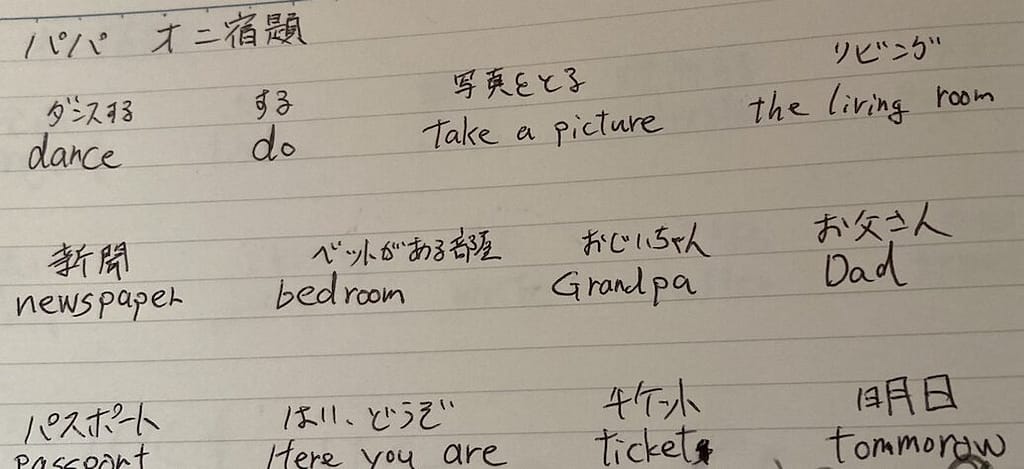 パパ オニ宿題
ダンスする する 写真をとる リビング
dance do take a picture the living room
新聞 ベットがある部屋 おじいちゃん お父さん
newspaper bedroom Grandpa Dad
パスポート はい、どうぞ チケット 明日
passport Here you are ticket tommorow